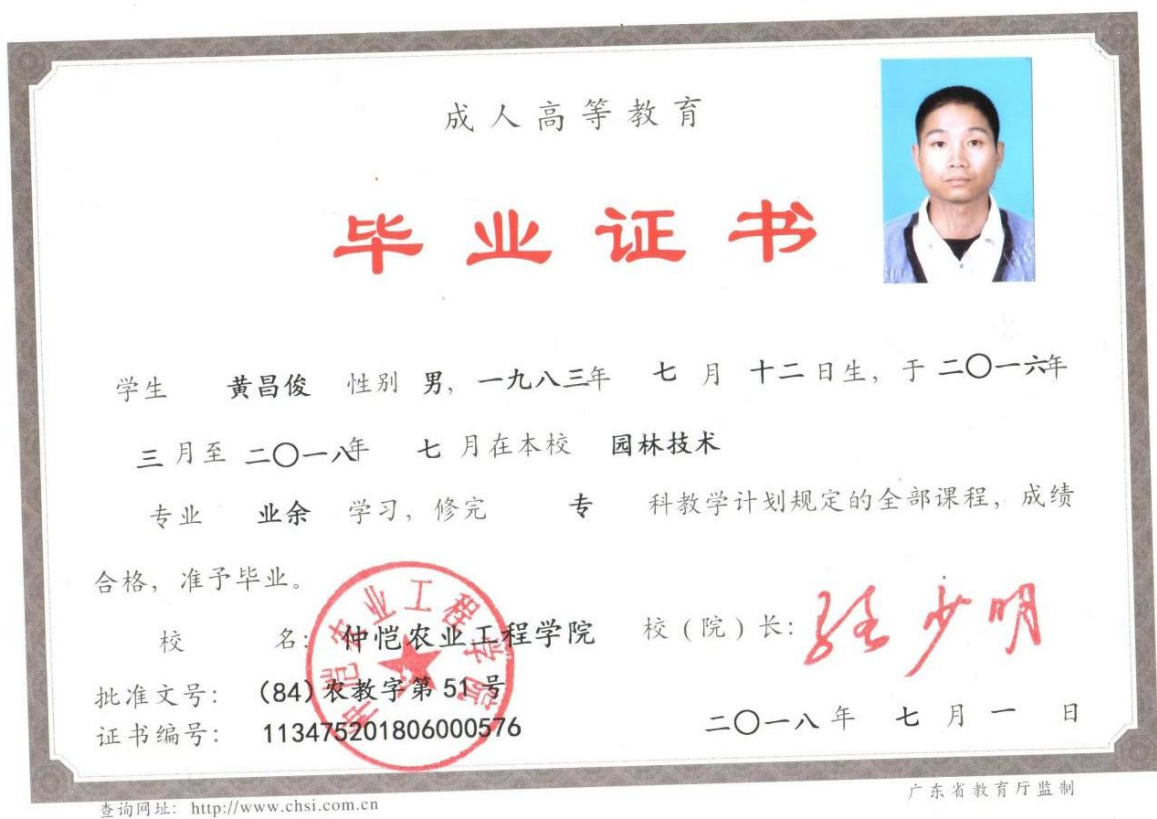 成人高等教育
毕业证书
学生 黄昌俊 性别 男，一九八三年 七 月 十二 日生，于 二〇一六年
三 月至 二〇一八年 七 月在本校 园林技术
专业 业余 学习，修完 专 科教学计划规定的全部课程，成绩
合格，准予毕业。
校 名：仲恺农业工程学院 校（院）长：
仲恺农业工程学院
批准文号：(84)农教字第 51 号
证书编号：113475201806000576
二〇一八 年 七 月 一 日
查询网址：http://www.chsi.com.cn
广东省教育厅监制